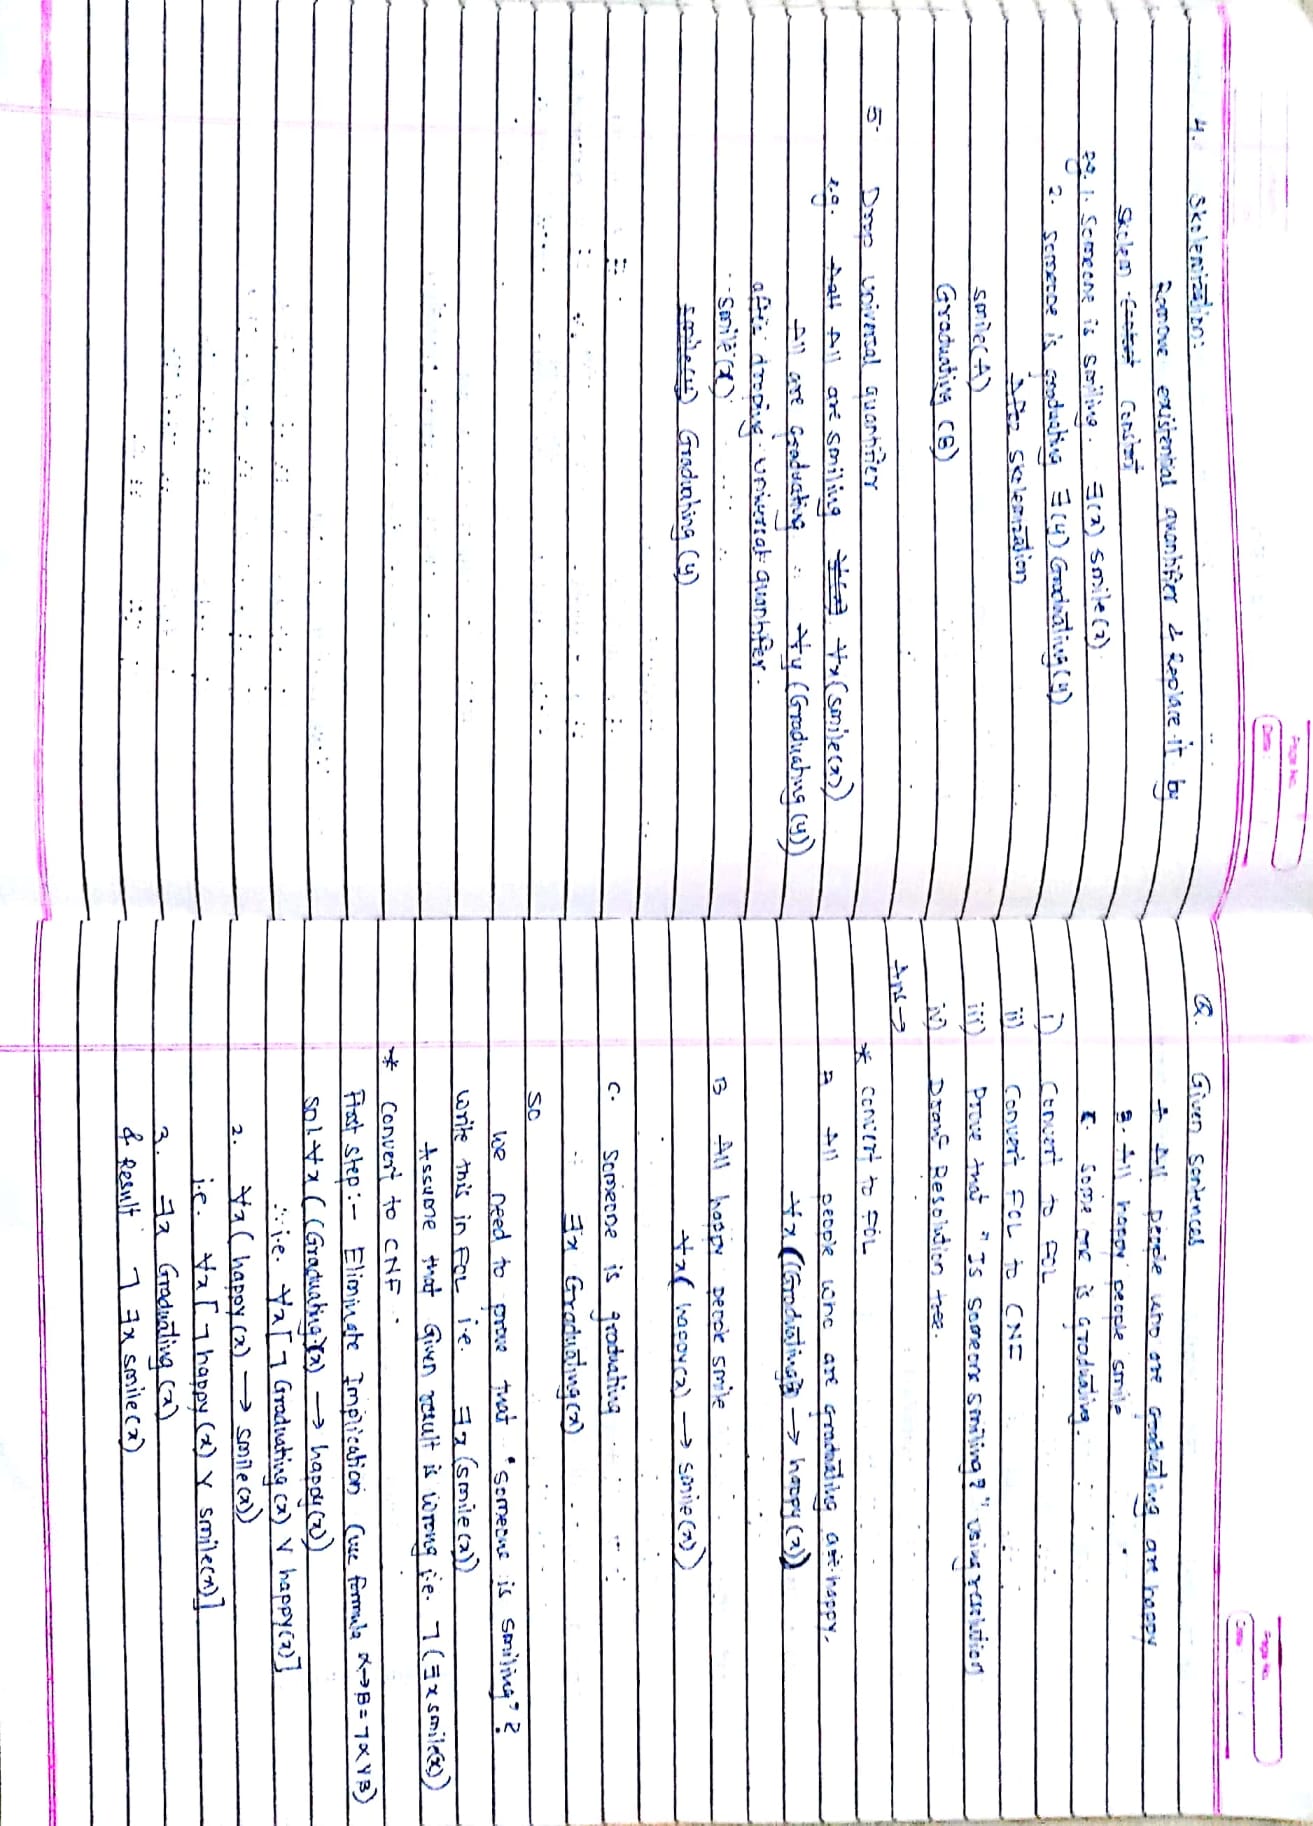 Page No.
Date:
4. Skolemization:
Remove existential quantifier & Replace it by
Skolem Constant
eg. 1. Someone is smiling. ∃(x) Smile(x)
2. someone is graduating ∃(y) Graduating(y)
After Skolemization
smile(A)
Graduating (B)
5. Drop universal quantifier
e.g. All are smiling ∀x(smile(x))
All are graduating ∀y (Graduating (y))
after droping universal quantifier.
smile(x)
smile(y) Graduating (y)
Page No.
Date
Q. Given sentences
A All people who are graduating are happy
B. All happy people smile
C. Some one is graduating.
i) Convert to FOL
ii) Convert FOL to CNF
iii) Prove that "Is someone smiling?" using resolution
iv) Draw Resolution tree.
Ans→
* convert to FOL
A All people who are graduating are happy.
∀x((Graduating(x) → happy(x))
B All happy people smile
∀x( happy(x) → smile(x))
C. Someone is graduating
∃x Graduating(x)
so
we need to prove that "someone is smiling"?
write this in FOL i.e. ∃x(smile(x))
Assume that Given result is wrong i.e. ¬(∃x smile(x))
* Convert to CNF
First step:- Eliminate Implication (use formula α→B = ¬α∨B)
sol. ∀x((Graduating(x) → happy(x))
∴ i.e. ∀x[¬ Graduating (x) ∨ happy(x)]
2. ∀x( happy(x) → smile(x))
i.e. ∀x[ ¬ happy(x) ∨ smile(x)]
3. ∃x Graduating (x)
& Result ¬ ∃x smile(x)